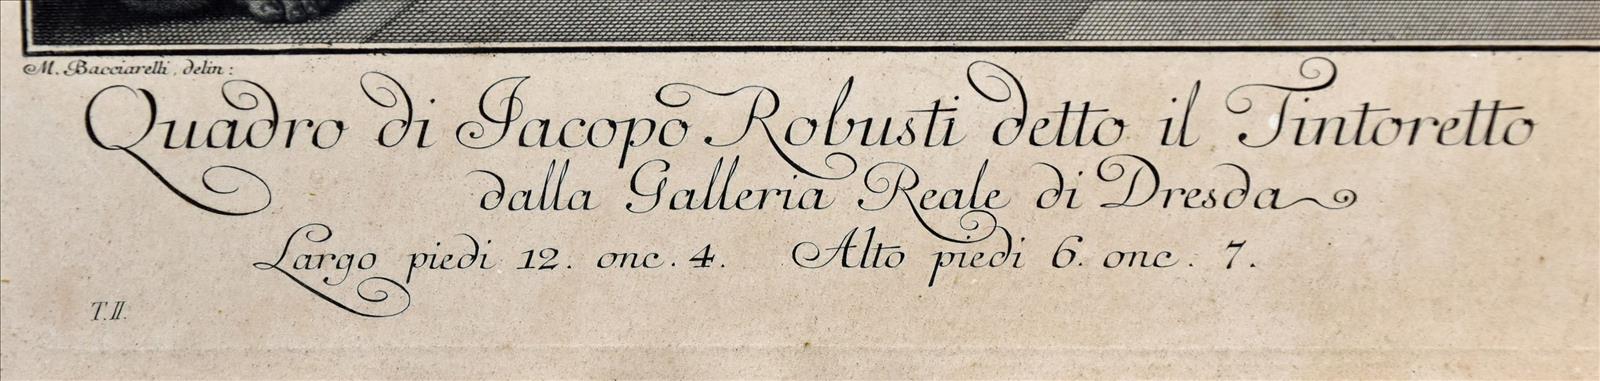 M. Bacciarelli, delin:
Quadro di Jacopo Robusti detto il Tintoretto
dalla Galleria Reale di Dresda
Largo piedi 12. onc. 4. Alto piedi 6. onc. 7.
T.II.